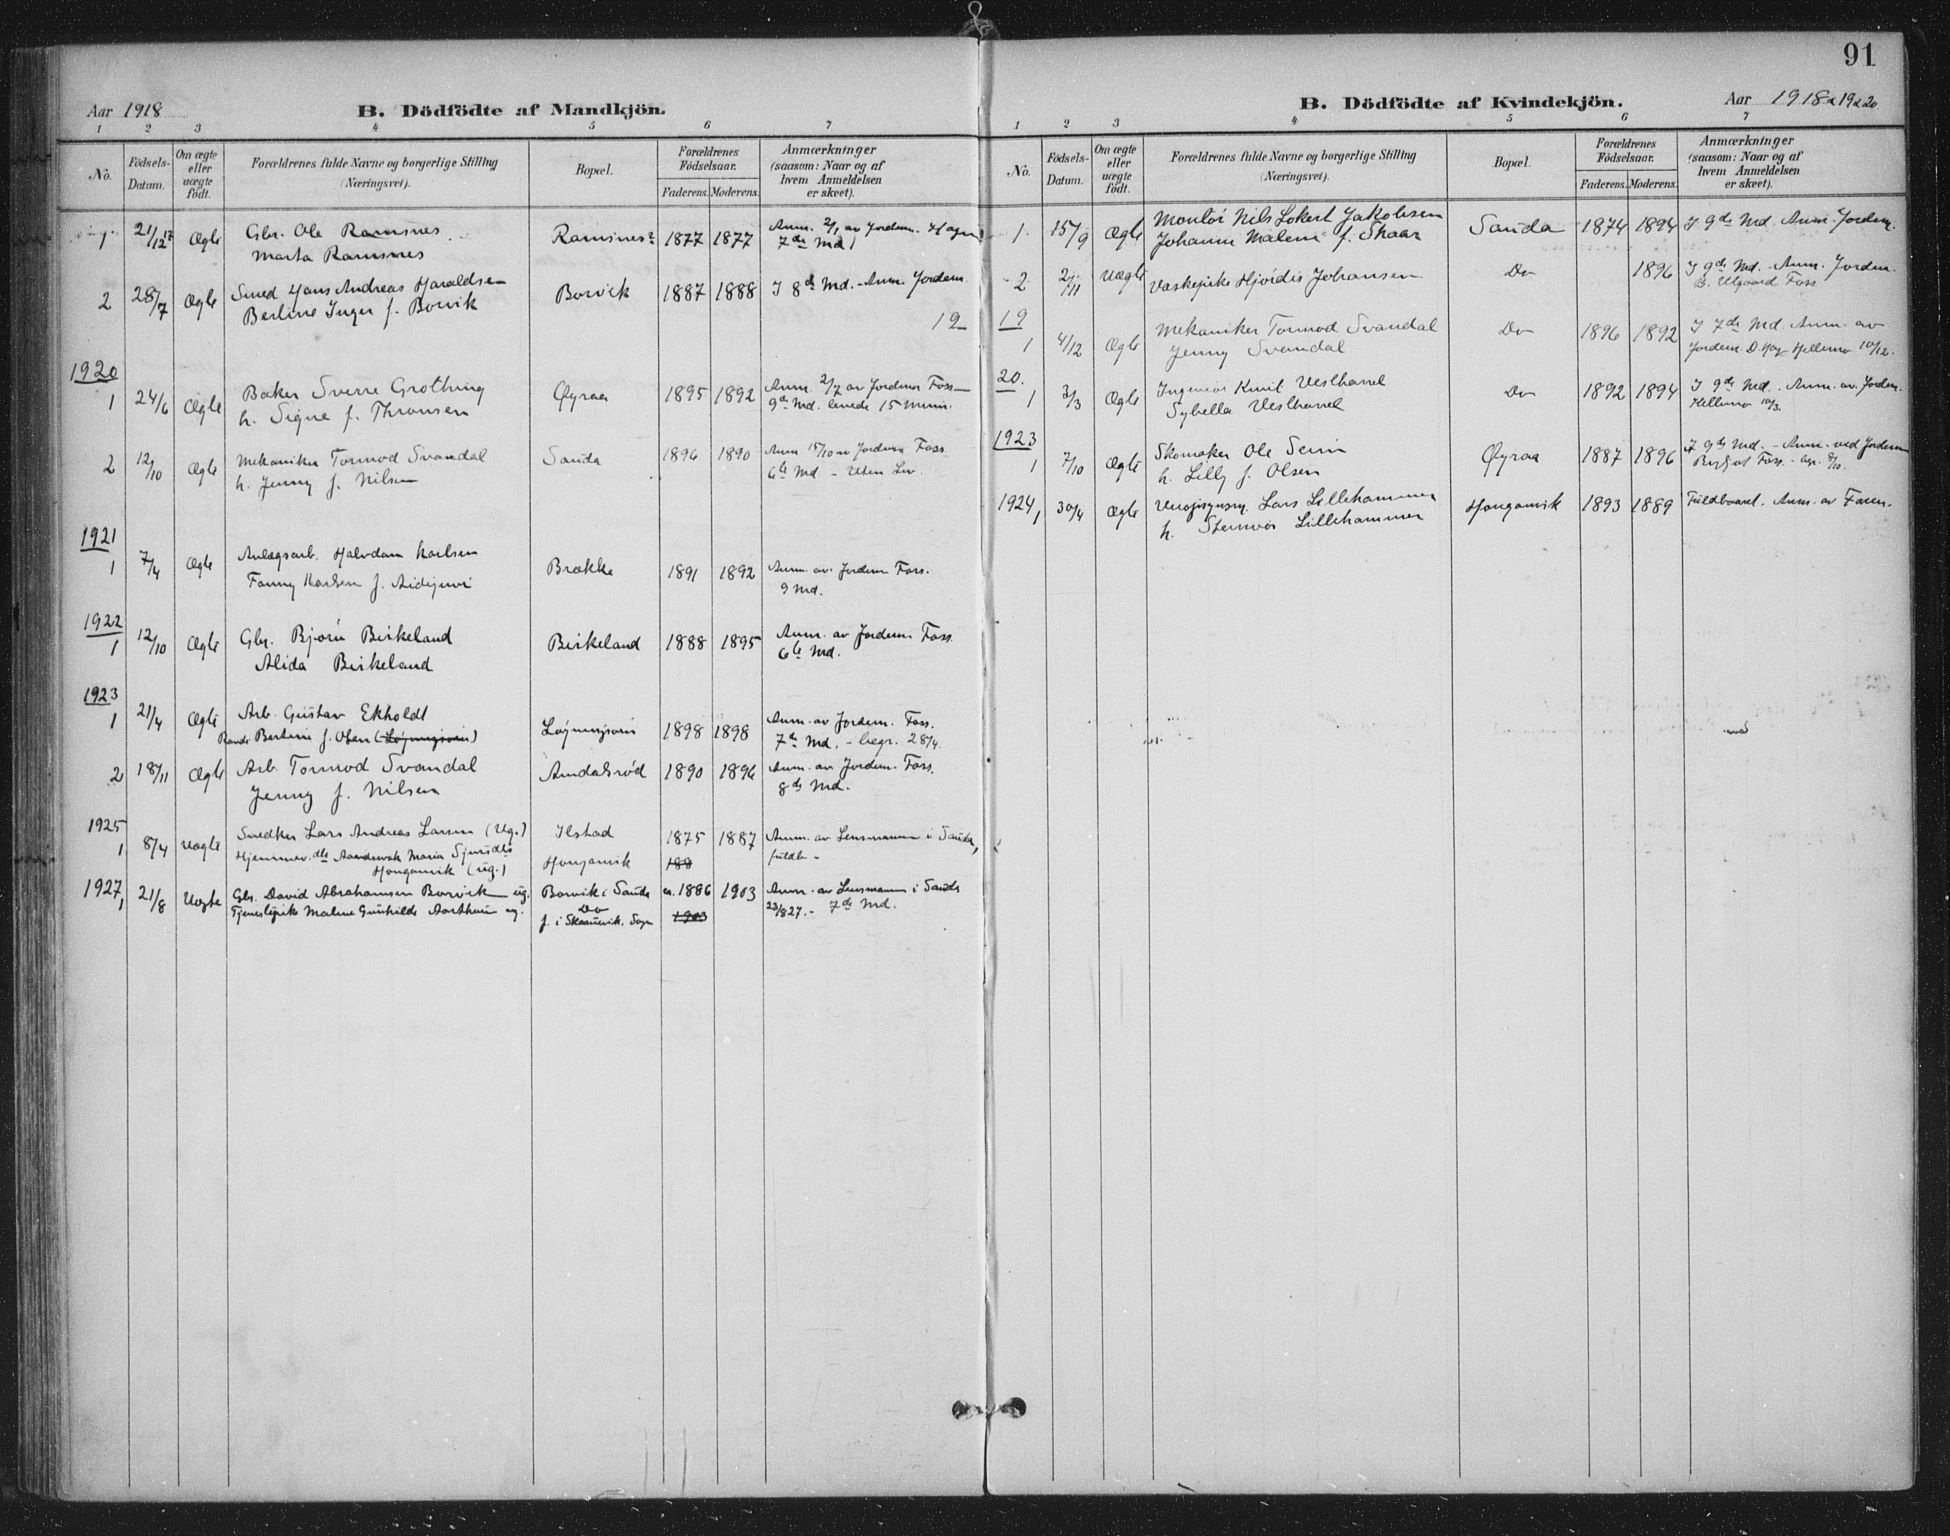 91
Aar 1918
B. Dödfödte af Mandkjön.
1 2 3 4 5 6 7
No.
Födsels-Datum.
Om ægte eller uægte födt.
Forældrenes fulde Navne og borgerlige Stilling (Næringsvei).
Bopæl.
Forældrenes Födselsaar.
Faderens. Moderens.
Anmærkninger (saasom: Naar og af hvem Anmeldelsen er skeet).
1 21/12 17 Ægte Gbr. Ole Ramsnes Ramsnes 1877 1877 Anm. 2/1 av Jordem.
Marta Ramsnes 7de Md
2 28/7 Ægte Smed Hans Andreas Haraldsen Borvik 1887 1888 I 8de Md. - Anm. Jordem.
Berline Inger f. Borvik
1920
1 24/6 Ægte Baker Sverre Grothing Øyraa 1895 1892 Anm. 2/7 av Jordem Foss
h. Signe f. Thronsen 9de Md. levede 15 Minu.
2 12/10 Ægte Mekaniker Tormod Svandal Sauda 1896 1890 Anm 15/10 av Jordem Foss
h. Jenny f. Nilsen 6te Md - Uten Liv.
1921
1 7/4 Ægte Anlægsarb. Halvdan Karlsen Brække 1891 1892 Anm. av. Jordem Foss.
Fanny Karlsen f. 9 Md.
1922
1 12/10 Ægte Gbr. Bjørn Birkeland Birkeland 1888 1895 Anm. av Jordem Foss
Alida Birkeland 6te Md.
1923
1 21/4 Ægte Arb. Gustav Ekholdt 1898 1898 Anm. av Jordem. Foss.
Bertine f. Olsen 7de Md. - begr. 28/4.
2 18/11 Ægte Arb. Tormod Svandal Amdalsrød 1890 1896 Anm. av Jordem. Foss.
Jenny f. Nilsen 8de Md.
1925
1 8/4 Uægte Snedker Lars Andreas Larsen (Ug.) Ilstad 1875 1887 Anm. av Lensmannen i Sauda,
Hjemmev. Maria Sjursdtr Hongamvik 188 fuldb.
Hongamvik (ug.)
1927
1 21/8 Uegte Gbr. David Abrahamsen Borvik ug. Borvik i Sauda ca. 1886 1903 Anm. av Lensmannen i Sauda
Tjenestepike Malene Gunhilde Aarthun ug. Do 1903 23/8 27. - 7de Md.
f. i Skaanevik. Sogn
B. Dödfödte af Kvindekjön.
Aar 1918 19 20
1 2 3 4 5 6 7
No.
Födsels-Datum.
Om ægte eller uægte födt.
Forældrenes fulde Navne og borgerlige Stilling (Næringsvei).
Bopæl.
Forældrenes Födselsaar.
Faderens. Moderens.
Anmærkninger (saasom: Naar og af hvem Anmeldelsen er skeet).
1 15/9 Ægte Montør Nils Lokert Jakobsen Sauda 1874 1894 I 9de Md. Anm. Jordem.
Johanne Malene f. Skaar
2 2/11 Uægte Vaskepike Hjørdis Johansen Do 1896 I 9de Md. Anm. Jordem.
B. Foss
19
1 4/12 Ægte Mekaniker Tormod Svandal Do 1896 1892 I 7de Md Anm. av
Jenny Svandal Jordem. Hellemo 10/12.
20.
1 3/3 Ægte Ingeniør Knut Vesthavel Do 1892 1894 I 9de Md. Anm. av. Jordem.
Sybella Vesthavel Hellemo 10/3.
1923
1 7/10 Ægte Skomaker Ole Seim Øyraa 1887 1896 I 9de Md. - Anm. ved Jordem
h. Lilly f. Olsen Foss
1924
1 30/4 Ægte Lars Lillehammer Hongamvik 1893 1889 Fuldbaaret. Anm. av Faren.
h. Steinvør Lillehammer